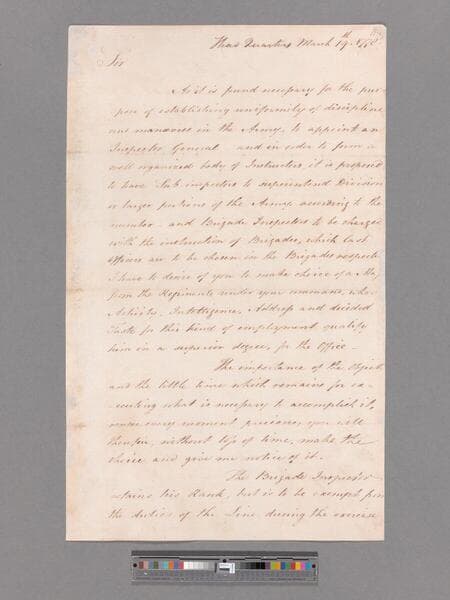 Head Quarters March 19th 1778
Sir
As it is found necessary for the pur-
pose of establishing uniformity of discipline
and manœuvres in the Army, to appoint an
Inspector General and in order to form a
well organized body of Instructors, it is proposed
to have Sub inspectors to superintend Division
or larger portions of the Army according to the
number - and Brigade Inspectors to be charged
with the instruction of Brigades, which last
officers are to be chosen in the Brigades respect
I have to desire of you to make choice of a Maj
from the Regiments under your command, who
Activity, Intelligence, Address and decided
taste for this kind of employment qualify
him in a superior degree, for the Office -
The importance of the Object
and the little time which remains for ex-
-ecuting what is necessary to accomplish it,
renders every moment precious, you will
therefore, without loss of time, make the
choice and give me notice of it.
The Brigade Inspector
retains his Rank, but is to be exempt from
the duties of the Line during the exercise